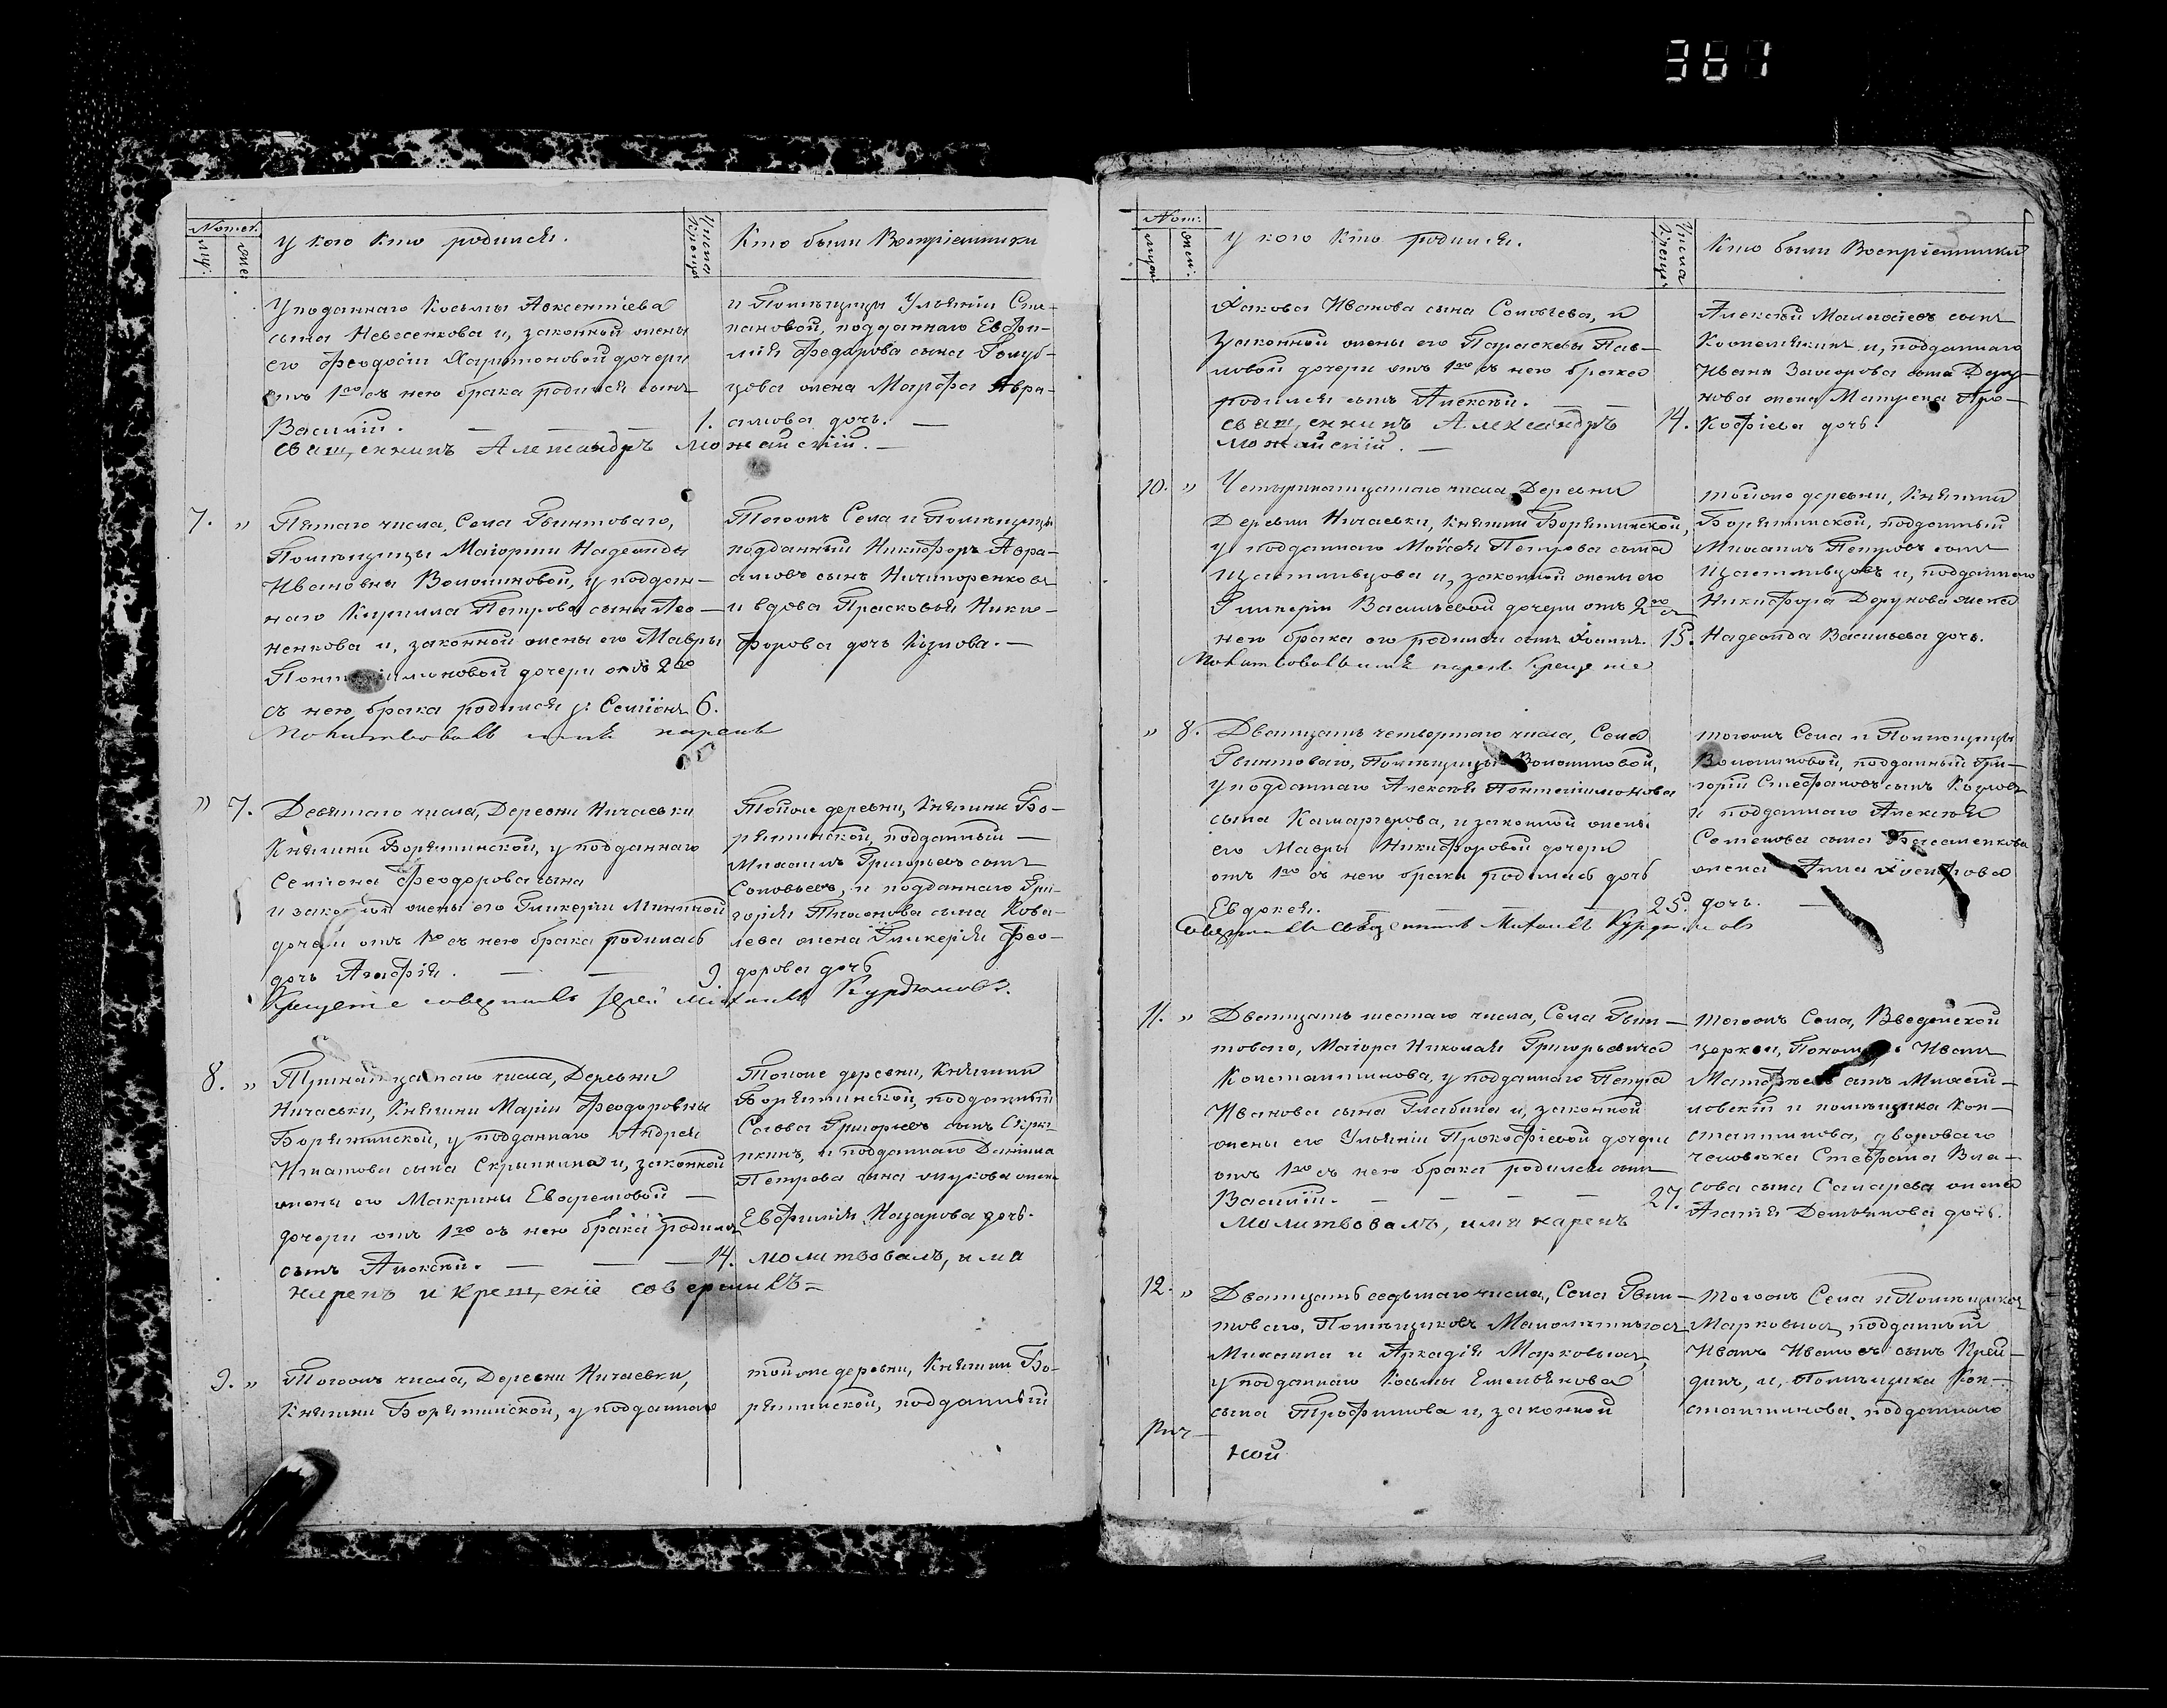 367
Номер.
муж.
жен.
у кого кто родился.
Числа Крещен.
Кто были Восприемники
У поданнаго Косьмы Авксентiева
сына Невесенкова и, законной жены
его Феодосiи Харитоновой дочери
отъ 1го съ нею брака родился сынъ
Василiй. — — — 1.
священникъ Александръ Можайскiй. —
и Помѣщицы Ульянiи Сте-
пановой, подданнаго Евфи-
мiя Федорова сына Голуб-
цова жена Марфа Авра-
амова дочь. —
7. „ Пятаго числа, Села Гвинтоваго,
Помѣщицы Маiорши Надежды
Ивановны Волошиновой, у поддан-
наго Кирилла Петрова сына Лео-
ненкова и, законной жены его Мавры
дочери отъ 2го
съ нею брака родился у: Семiонъ 6.
Молитвовалъ имя нарекъ
Тогожъ Села и Помѣщицы
подданный Никифоръ Авра-
амовъ сынъ Ничипоренковъ
и вдова Прасковья Ники-
форова дочь Козлова. —
„ 7. Девятаго числа, Деревни Ничаевки
Княгини Борятинской, у подданнаго
Семiона Феодорова сына
и законной жены его Гликерiи Мининой
дочери отъ 1го съ нею брака родилась
дочь Агафiя. — — 9.
Крещенiе совершилъ Iерей Михаилъ Курдюмовъ.
Тойже деревни, Княгини Бо-
рятинской, подданный —
Михаилъ Григорьевъ сынъ
Соловьевъ, и подданнаго Гри-
горiя Тихонова сына Кова-
лева жена Гликерiя Фео-
дорова дочь
8. „ Тринатцатаго числа, Деревни
Ничаевки, Княгини Марiи Феодоровны
Борятинской, у подданнаго Андрея
Игнатова сына Скрыпкина и, законной
жены его Макрины Евдремовой —
дочери отъ 1го съ нею брака родился
сынъ Алексѣй. — — — 14.
Тогоже деревни, Княгини
Борятинской, подданный
Савва Григорьевъ сынъ Скры-
пкинъ, и подданнаго Данiила
Петрова сына Жукова жена
Евфимiя Назарова дочь.
молитвовалъ, имя
нарекъ и крещенiе совершилъ =
9. „ Тогожъ числа, Деревни Ничаевки,
Княгини Борятинской, у подданнаго
тойже деревни, Княгини Бо-
рятинской, подданный
Ном:
мужеск
жен:
у кого кто родился.
Числа Крещен
Кто были Восприемники
Iакова Иванова сына Соловьева, и
законной жены его Параскевы Пав-
ловой дочери отъ 1го съ нею брака
родился сынъ Алексѣй. — —
священникъ Александръ 14.
Можайскiй. —
Алексѣй Матвѣевъ сынъ
и, подданнаго
Ивана Захарова сына Деду-
нова жена Матрена Про-
кофiева дочь.
10. „ Четырнатцатаго числа Деревни
Деревни Ничаевки, Княгини Борятинской,
у подданнаго Моѵсея Петрова сына
Щастливцова и, законной жены его
Гликерiи Васильевой дочери отъ 2го съ
нею брака его родился сынъ Iоаннъ. 15.
Молитвовалъ имя нарекъ Крещенiе
тойже деревни, Княгини
Борятинской, подданный
Михаилъ Петровъ сынъ
Щастливцовъ и, подданнаго
Никифора Дедунова жена
Надежда Васильева дочь.
„ 8. Дватцать четвертаго числа, Села
Гвинтоваго, Помѣщицы Волошиновой,
у подданнаго Алексѣя Понтелiимонова
сына Камардерова, и законной жены
его Мавры Никифоровой дочери
отъ 1го съ нею брака родилась дочь
Евдокея. — — — 25.
Священникъ Михаилъ Курдюмовъ
тогожъ Села и Помѣщицы
Волошиновой, подданный Гри-
горiй Стефановъ сынъ Козловъ
и подданнаго Алексѣя
Семенова сына
жена Анна
дочь. —
11. „ Дватцать шестаго числа, Села Гвин-
товаго, Маiора Николая Григорьевича
Константинова, у подданнаго Петра
Иванова сына Глабина и, законной
жены его Ульянiи Прокофiевой дочери
отъ 1го съ нею брака родился сынъ
Василiй. — — — — 27.
Молитвовалъ, имя нарекъ
тогожъ Села, Введенской
церкви, Пономарь Иванъ
Матфѣевъ сынъ
и помѣщика Кон-
стантинова, двороваго
человѣка Стефана Вла-
сова сына Самарева жена
Агафiя Демьянова дочь.
12. „ Дватцать седьмаго числа, Села Гвин-
товаго, Помѣщиковъ Малолѣтныхъ
Михаила и Аркадiя Марковыхъ,
у подданнаго Косьмы Емельянова
сына Трофимова и, законной
ной
тогожъ Села и Помѣщиковъ
Марковыхъ, подданный
Иванъ Ивановъ сынъ Крей-
динъ, и, Помѣщика Кон-
стантинова, подданнаго